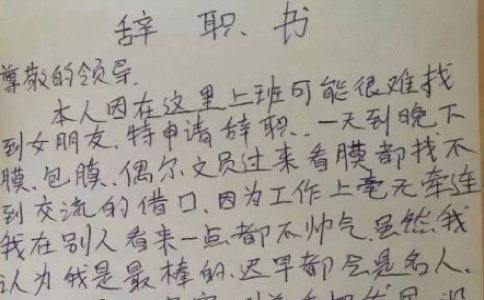 辞职书
尊敬的领导.
本人因在这里上班可能很难找
到女朋友.特申请辞职.一天到晚下
膜.包膜.偶尔文员过来看膜都找不
到交流的借口.因为工作上毫无牵连
我在别人看来一点都不帅气.虽然.我
认为我是最棒的.迟早都会是名人.